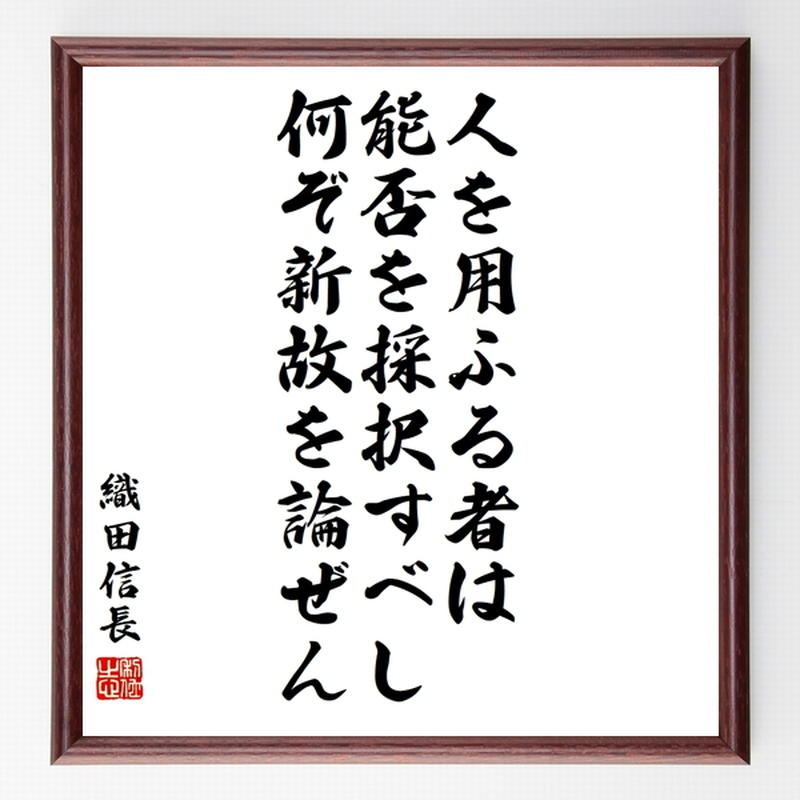 人を用ふる者は
能否を採択すべし
何ぞ新故を論ぜん
織田信長